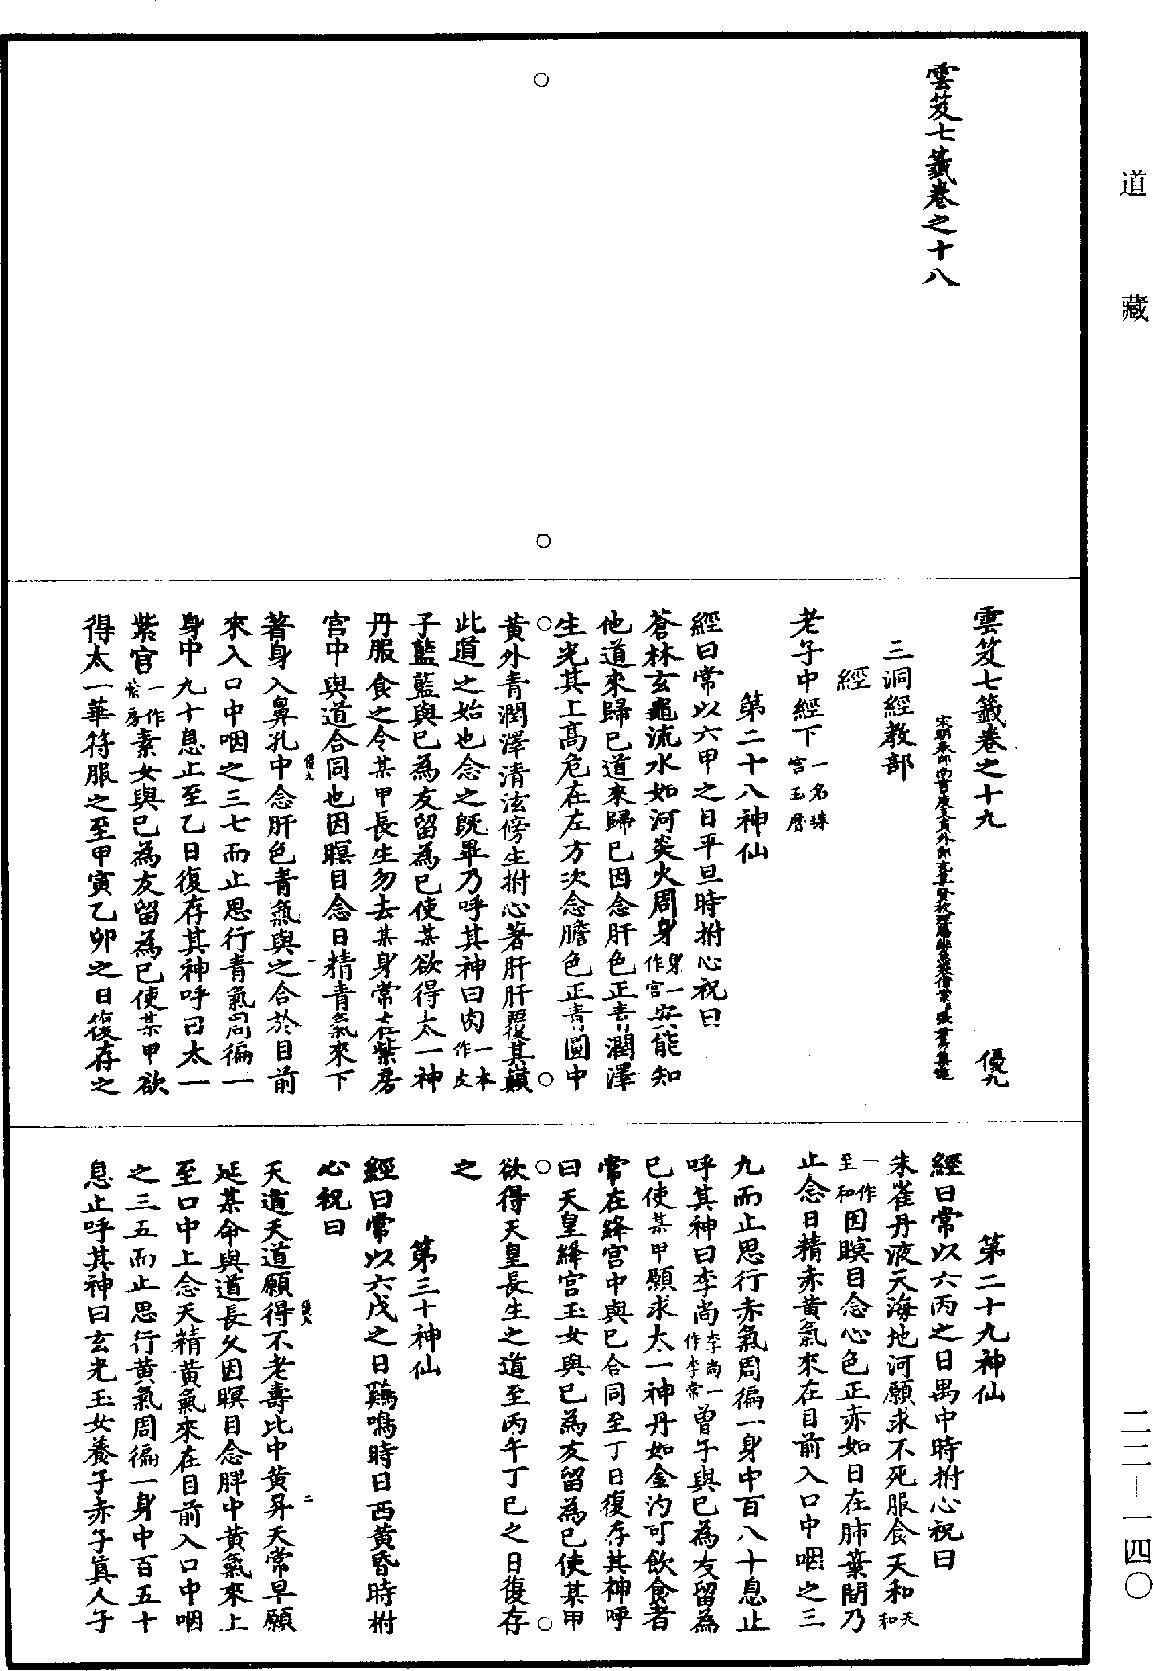 道藏
二二—一四〇
雲笈七籤卷之十八
雲笈七籤卷之十九 優九
三洞經教部
經
老子中經下一名珠宮玉曆
第二十八神仙
經曰常以六甲之日平旦時拊心祝曰
蒼林玄龜流水如河炎火周身身一作宮安能知
他道來歸已道來歸已因念肝色正青潤澤
生光其上高危在左方次念膽色正青圓中
黃外青潤澤清泫傍生拊心著肝肝覆其巔
此道之始也念之既畢乃呼其神曰肉一本作皮
子藍藍與已為友留為已使某欲得太一神
丹服食之令某甲長生勿去某身常在紫房
宮中與道合同也因瞑目念日精青氣來下
著身入鼻孔中念肝色青氣與之合於目前
來入口中咽之三七而止思行青氣周徧一
身中九十息止至乙日復存其神呼曰太一
紫宮一作紫房素女與已為友留為已使某甲欲
得太一華符服之至甲寅乙卯之日復存之
第二十九神仙
經曰常以六丙之日禺中時拊心祝曰
朱雀丹液天海地河願求不死服食天和天和
一作至和因瞑目念心色正赤如日在肺葉間乃
止念日精赤黃氣來在目前入口中咽之三
九而止思行赤氣周徧一身中百八十息止
呼其神曰李尚李尚一作李常曾子與已為友留為
已使某甲願求太一神丹如金汋可飲食者
常在絳宮中與已合同至丁日復存其神呼
曰天皇絳宮玉女與已為友留為已使某甲
欲得天皇長生之道至丙午丁巳之日復存
之
第三十神仙
經曰常以六戊之日鷄鳴時日西黃昏時拊
心祝曰
天道天道願得不老壽比中黃昇天常早願
延某命與道長久因瞑目念脾中黃氣來上
至口中上念天精黃氣來在目前入口中咽
之三五而止思行黃氣周徧一身中百五十
息止呼其神曰玄光玉女養子赤子真人子